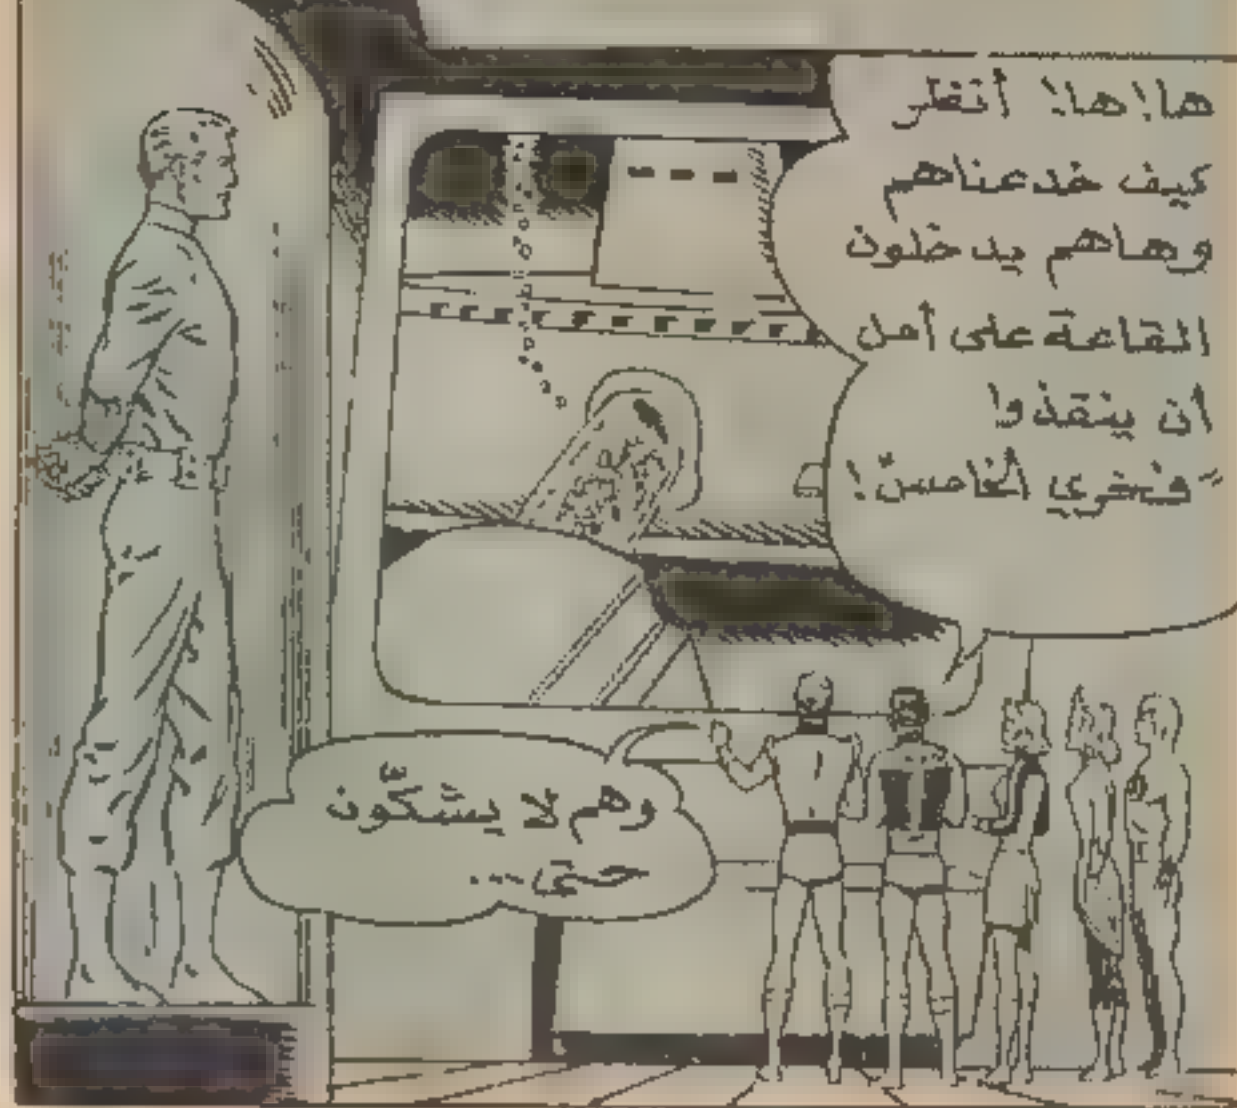 ها!ها! أنظر
كيف خدعناهم
وهاهم يدخلون
القاعة على أمل
أن ينقذوا
"فخري الخامس"!
وهم لا يشكّون
حتى...